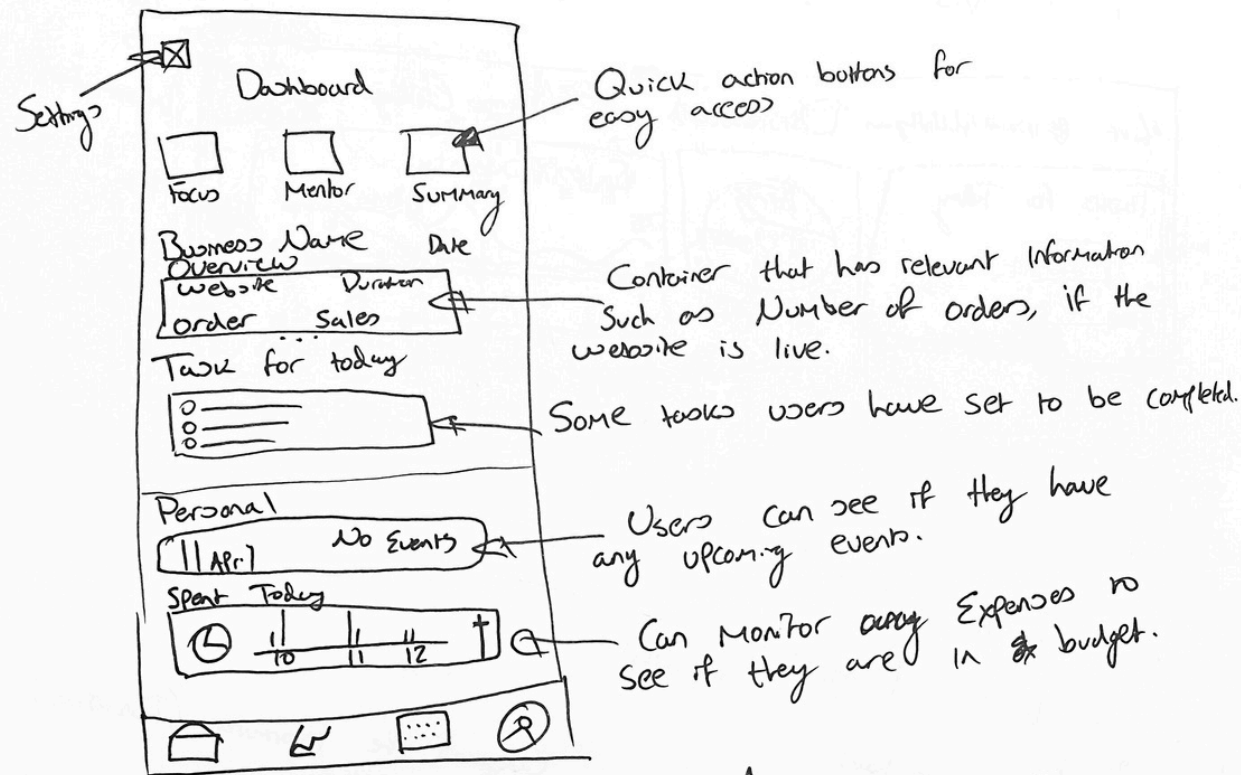 Settings
Dashboard
Focus Mentor Summary
Business Name Date
Overview
Website Duration
order Sales
...
Task for today
Personal
11 Apr No Events
Spent Today
10 11 12
Quick action buttons for
easy access
Container that has relevant Information
Such as Number of orders, if the
website is live.
Some tasks users have set to be completed.
Users can see if they have
any upcoming events.
Can Monitor Expenses to
See if they are in budget.